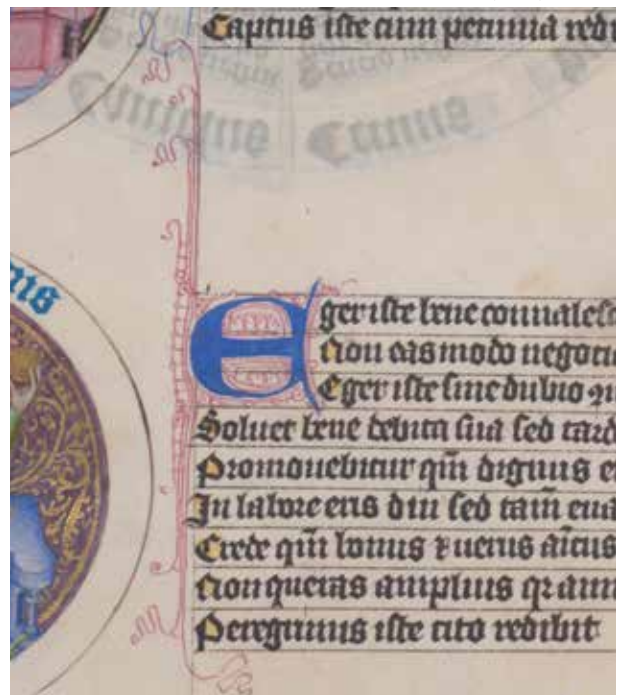 Captus iste cum pecunia redi
Cunus
nus
Eger iste bene conualesc
Non eas modo negoci
Eger iste sine dubio
Soluet bene debita sua sed tard
Promouebitur qm̄ dignus e
In labore eris diu sed tam̄ eua
Crede qm̄ bonus ⁊ uerus aīcus
Non queras amplius
Peregrinus iste cito redibit